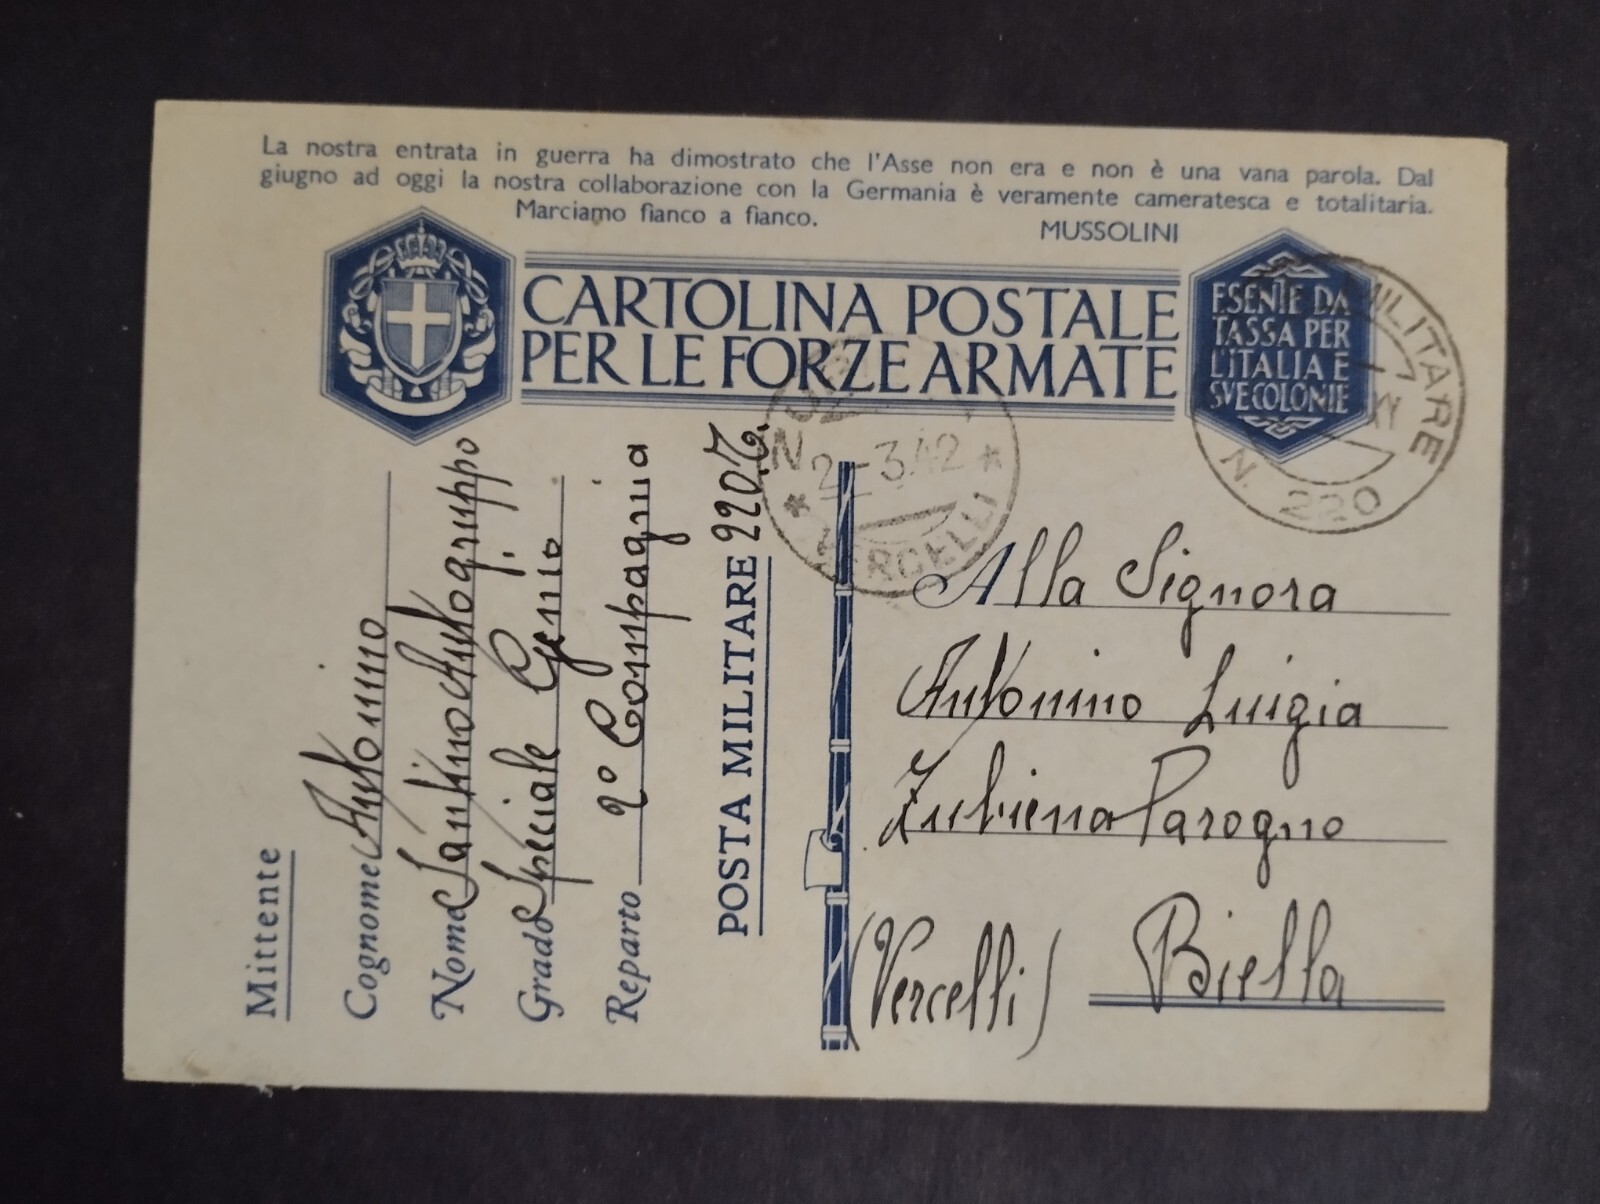 La nostra entrata in guerra ha dimostrato che l'Asse non era e non è una vana parola. Dal
giugno ad oggi la nostra collaborazione con la Germania è veramente cameratesca e totalitaria.
Marciamo fianco a fianco.
MUSSOLINI
CARTOLINA POSTALE
PER LE FORZE ARMATE
ESENTE DA
TASSA PER
L'ITALIA E
SVE COLONIE
MILITARE
N. 220
N 2-3.42
VERCELLI
Mittente
Cognome Antonino
Nome Santino Autogruppo
Grado Speciale Genio
Reparto 2° Compagnia
POSTA MILITARE 220.T.
Alla Signora
Antonino Luigia
Zubiena Parogno
Biella
(Vercelli)